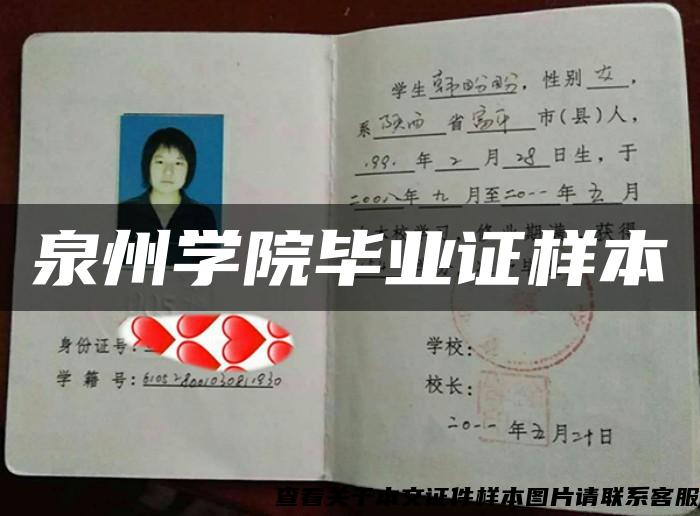 学生韩盼盼，性别女，
系陕西省富平市(县)人，
1991年2月28日生，于
二00八年九月至二0一一年五月
本校学习，修业期满，获得
泉州学院毕业证样本
身份证号:
学籍号:610528001030811930
学校:
校长:
二0一一年五月二十日
查看关于本文证件样本图片请联系客服